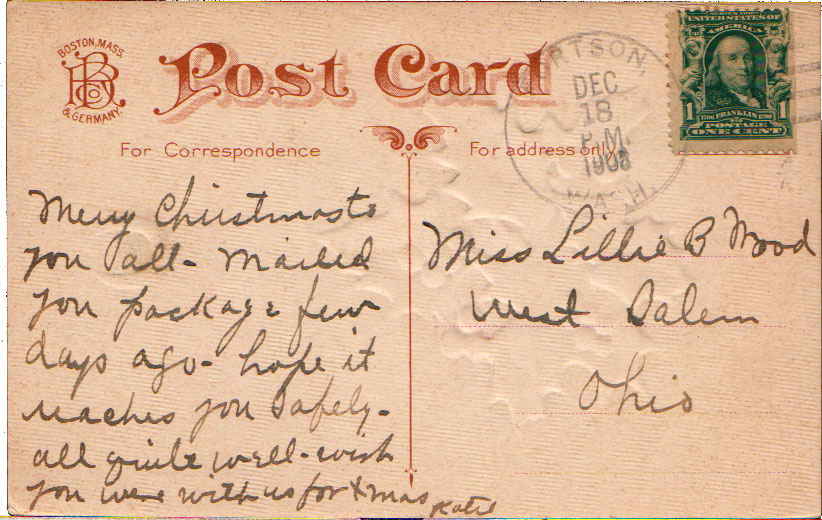 BOSTON, MASS.
BR Co
& GERMANY.
Post Card
For Correspondence
For address only.
RTSON,
DEC
18
P.M.
1908
WASH.
UNITED STATES OF
AMERICA
1 1
1706 FRANKLIN 1790
POSTAGE
ONE CENT
Merry Christmas to
you all - mailed
you package few
days ago - hope it
reaches you safely -
all quite well - wish
you were with us for Xmas
Katie
Miss Lillie B Wood
West Salem
Ohio